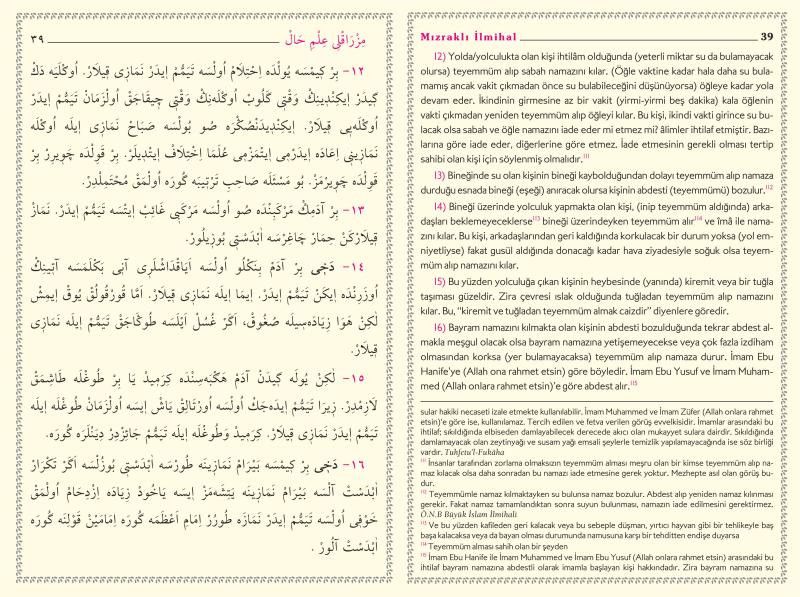 ٣٩ مِزْرَاقْلِى عِلْمِ حَالْ
١٢- بِرْ كِيمْسَه يُولْدَه اِحْتِلَامْ اُولْسَه تَيَمُّمْ اِيدَرْ نَمَازِى قِيلَارْ. اُوكْلَيَه دَكْ
كِيدَرْ اِيكِنْدِينِكْ وَقْتِى كَلُوبْ اُوكْلَه‌نِكْ وَقْتِى چِيقَاجَقْ اُولْزَمَانْ تَيَمُّمْ اِيدَرْ
اُوكْلَه‌يِى قِيلَارْ. اِيكِنْدِيدَنْصُكْرَه صُو بُولْسَه صَبَاحْ نَمَازِى اِيلَه اُوكْلَه
نَمَازِينِى اِعَادَه اِيدَرْمِى اِيتْمَزْمِى عُلَمَا اِخْتِلَافْ اِيتْدِيلَرْ. بِرْ قَوِلْدَه چَوِيرِرْ بِرْ
قَوِلْدَه چَوِيرْمَزْ. بُو مَسْئَلَه صَاحِبِ تَرْتِيبَه كُورَه اُولْمَقْ مُحْتَمِلْدِرْ.
١٣- بِرْ آدَمِكْ مَرْكَبِنْدَه صُو اُولْسَه مَرْكَبِى غَائِبْ اِيتْسَه تَيَمُّمْ اِيدَرْ. نَمَازْ
قِيلَارْكَنْ حِمَارْ چَاغِرْسَه اَبْدَسْتِى بُوزِيلُورْ.
١٤- دَخِى بِرْ آدَمْ بِنَكْلُو اُولْسَه اَيَاقْدَاشْلَرِى آنِى بَكْلَمَسَه آتِينِكْ
اُوزَرِنْدَه اِيكَنْ تَيَمُّمْ اِيدَرْ. اِيمَا اِيلَه نَمَازِى قِيلَارْ. اَمَّا قُورْقُولْقْ يُوقْ اِيمِشْ
لٰكِنْ هَوَا زِيَادَه‌سِيلَه صُغُوقْ، اَكَرْ غُسْلْ اَيْلَسَه طُوكَاجَقْ تَيَمُّمْ اِيلَه نَمَازِى
قِيلَارْ.
١٥- لٰكِنْ يُولَه كِيدَنْ آدَمْ هَكْبَه‌سِنْدَه كِرَمِيدْ يَا بِرْ طُوغْلَه طَاشِمَقْ
لَازِمْدِرْ. زِيرَا تَيَمُّمْ اِيدَه‌جَكْ اُولْسَه اُورْتَالِقْ يَاشْ اِيسَه اُولْزَمَانْ طُوغْلَه اِيلَه
تَيَمُّمْ اِيدَرْ نَمَازِى قِيلَارْ. كِرَمِيدْ وَطُوغْلَه اِيلَه تَيَمُّمْ جَائِزْدِرْ دِيَنْلَرَه كُورَه.
١٦- دَخِى بِرْ كِيمْسَه بَيْرَامْ نَمَازِينَه طُورْسَه اَبْدَسْتِى بُوزُلْسَه اَكَرْ تَكْرَارْ
اَبْدَسْتْ آلْسَه بَيْرَامْ نَمَازِينَه يَتِشَه‌مَزْ اِيسَه يَاخُودْ زِيَادَه اِزْدِحَامْ اُولْمَقْ
خَوْفِى اُولْسَه تَيَمُّمْ اِيدَرْ نَمَازَه طُورُرْ اِمَامِ اَعْظَمَه كُورَه اِمَامَيْنْ قَوْلِنَه كُورَه
اَبْدَسْتْ آلُورْ.
Mızraklı İlmihal 39
12) Yolda/yolculukta olan kişi ihtilâm olduğunda (yeterli miktar su da bulamayacak
olursa) teyemmüm alıp sabah namazını kılar. (Öğle vaktine kadar hala daha su bula-
mamış ancak vakit çıkmadan önce su bulabileceğini düşünüyorsa) öğleye kadar yola
devam eder. İkindinin girmesine az bir vakit (yirmi-yirmi beş dakika) kala öğlenin
vakti çıkmadan yeniden teyemmüm alıp öğleyi kılar. Bu kişi, ikindi vakti girince su bu-
lacak olsa sabah ve öğle namazını iade eder mi etmez mi? âlimler ihtilaf etmiştir. Bazı-
larına göre iade eder, diğerlerine göre etmez. İade etmesinin gerekli olması tertip
sahibi olan kişi için söylenmiş olmalıdır.¹¹¹
13) Bineğinde su olan kişinin bineği kaybolduğundan dolayı teyemmüm alıp namaza
durduğu esnada bineği (eşeği) anıracak olursa kişinin abdesti (teyemmümü) bozulur.¹¹²
14) Bineği üzerinde yolculuk yapmakta olan kişi, (inip teyemmüm aldığında) arka-
daşları beklemeyeceklerse¹¹³ bineği üzerindeyken teyemmüm alır¹¹⁴ ve îmâ ile nama-
zını kılar. Bu kişi, arkadaşlarından geri kaldığında korkulacak bir durum yoksa (yol em-
niyetliyse) fakat gusül aldığında donacağı kadar hava ziyadesiyle soğuk olsa teyem-
müm alıp namazını kılar.
15) Bu yüzden yolculuğa çıkan kişinin heybesinde (yanında) kiremit veya bir tuğla
taşıması güzeldir. Zira çevresi ıslak olduğunda tuğladan teyemmüm alıp namazını
kılar. Bu, “kiremit ve tuğladan teyemmüm almak caizdir” diyenlere göredir.
16) Bayram namazını kılmakta olan kişinin abdesti bozulduğunda tekrar abdest al-
makla meşgul olacak olsa bayram namazına yetişemeyecekse veya çok fazla izdiham
olmasından korksa (yer bulamayacaksa) teyemmüm alıp namaza durur. İmam Ebu
Hanife'ye (Allah ona rahmet etsin) göre böyledir. İmam Ebu Yusuf ve İmam Muham-
med (Allah onlara rahmet etsin)'e göre abdest alır.¹¹⁵
sular hakiki necaseti izale etmekte kullanılabilir. İmam Muhammed ve İmam Züfer (Allah onlara rahmet
etsin)'e göre ise, kullanılamaz. Tercih edilen ve fetva verilen görüş evvelkisidir. İmamlar arasındaki bu
ihtilaf; sıkıldığında elbiseden damlayabilecek derecede akıcı olan mukayyet sulara dairdir. Sıkıldığında
damlamayacak olan zeytinyağı ve susam yağı emsali şeylerle temizlik yapılamayacağında ise söz birliği
vardır. Tuhfetu'l-Fukâha
¹¹¹ İnsanlar tarafından zorlama olmaksızın teyemmüm alması meşru olan bir kimse teyemmüm alıp na-
maz kılacak olsa daha sonradan bu namazı iade etmesine gerek yoktur. Mezhepte asıl olan görüş bu-
dur.
¹¹² Teyemmümle namaz kılmaktayken su bulunsa namaz bozulur. Abdest alıp yeniden namaz kılınması
gerekir. Fakat namaz tamamlandıktan sonra suyun bulunması, namazın iade edilmesini gerektirmez.
Ö.N.B Büyük İslam İlmihali
¹¹³ Ve bu yüzden kafileden geri kalacak veya bu sebeple düşman, yırtıcı hayvan gibi bir tehlikeyle baş
başa kalacaksa veya da bayan olması durumunda namusuna karşı bir tehditten endişe duyarsa
¹¹⁴ Teyemmüm alması sahih olan bir şeyden
¹¹⁵ İmam Ebu Hanife ile İmam Muhammed ve İmam Ebu Yusuf (Allah onlara rahmet etsin) arasındaki bu
ihtilaf bayram namazına abdestli olarak imamla başlayan kişi hakkındadır. Zira bayram namazına su